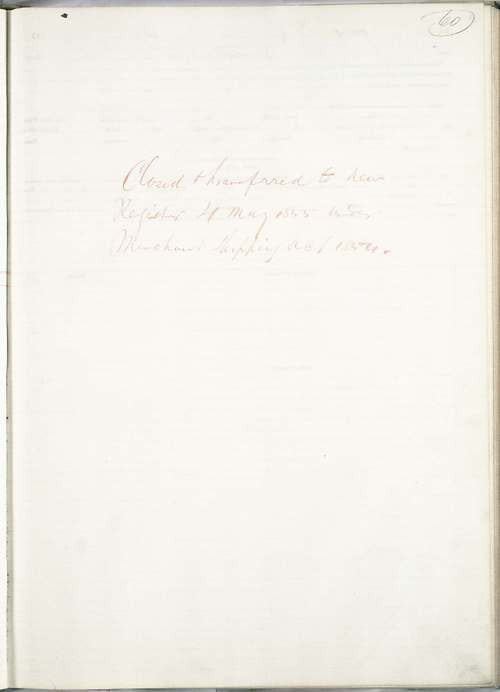 60
Closed & transferred to new
Register May 1855 under
Merchant Shipping Act 1854.